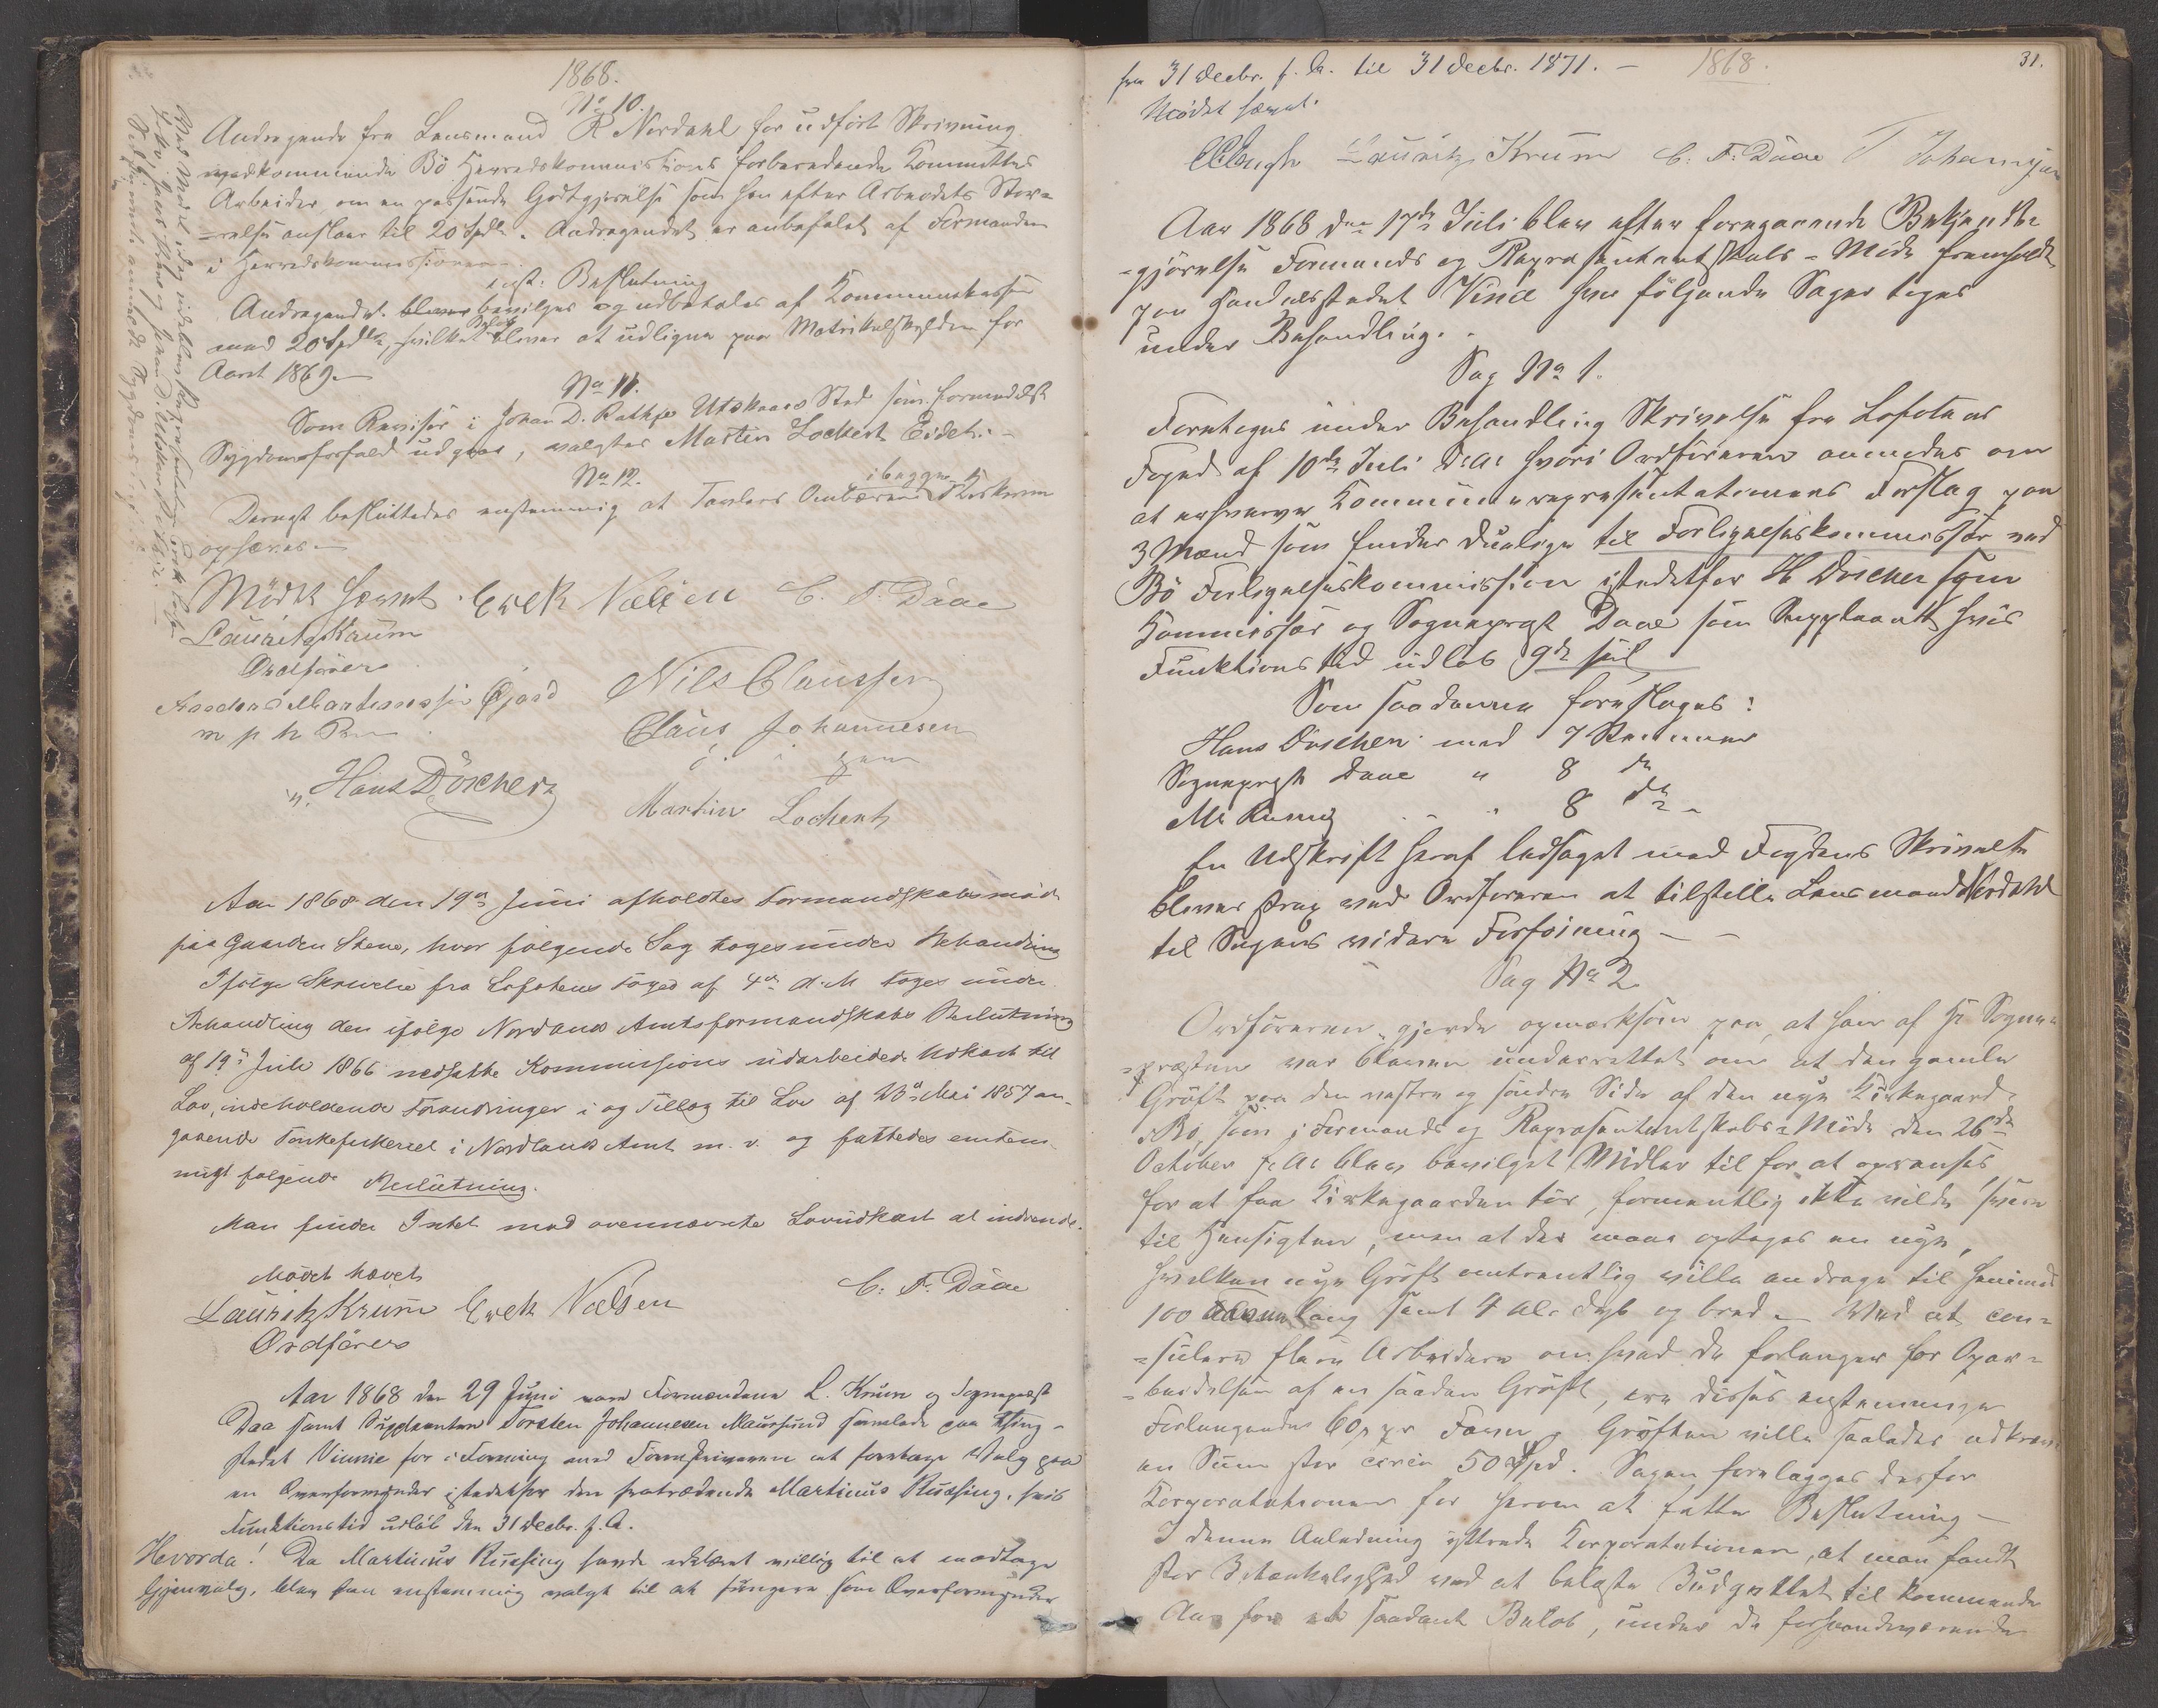 1868.
No 10.
Andragende fra Lensmand R Nordahl for udført Skrivning
vedkommende Bö Herredskommissions forberedende Kommittes
Arbeider, om en passende Godtgjørelse som han efter Arbeidets Stör=
=relse anslaar til 20 Spdlr. Andragendet er anbefalet af Formanden
i Herredskommissionen.
enst: Beslutning
Andragendet bevilges og udbetales af Kommunekassen
med 20 Spdlr, hvilket Beløb bliver at udligne paa Matrikulskylden for
Aaret 1869.
No 11.
Som Revisor i Johan D. Rathjes Utskaars Sted som formedelst
Sygdomsforfald udgaar, valgtes Martin Lockert Eidet.
No 12.
Dernæst besluttedes enstemmig at Tavlers Ombæren i begge Kirkerne
ophæves.
Mödet hævet. Erek Nelsen C. F. Daae
Lauritz Krüm
Ordförer
Anders Martinussen Gjård
m p h Pen
Nils Claussen
Claus Johannesen
Hans Döscher
Martin Lockert
Aar 1868 den 19de Juni afholdtes Formandskabsmöde
paa Gaarden Steene, hvor fölgende Sag toges under Behandling
Ifölge Skrivelse fra Lofotens Foged af 4de d. M. toges under
Behandling den ifölge Nordlands Amtsformandskabs Beslutning
af 19de Juli 1866 nedsatte Kommissions udarbeidede Udkast til
Lov, indeholdende Forandringer i og Tillæg til Lov af 23de Mai 1857 an-
gaaende Torskefiskeriet i Nordlands Amt m. v. og fattedes enstem-
migt fölgende Beslutning.
Man finder Intet mod ovennævnte Lovudkast at indvende.
Mödet hævet
Lauritz Krüm Erek Nelsen C: F. Daae
Ordförer
Aar 1868 den 29 Juni vare Formændene L. Krüm og Sognepræst
Daa samt Suppleanten Torsten Johannesen Maursund samlede paa Thing-
stedet Vinnie for i Forening med Sorenskriveren at foretage Valg paa
en Overformynder istedetfor den fratrædende Martinus Rüssing, hvis
Funktionstid udlöb den 31 Decbr. f. A.
Hvorda! Da Martinus Rüssing havde erklæret villig til at modtage
Gjenvalg, blev han enstemmig valgt til at fungere som Overformynder
fra 31 Decbr. f. A. til 31 Decbr. 1871. – 1868. 31.
Mödet hævet.
Lauritz Krüm C: F. Daae T Johannesen
Aar 1868 den 17de Juli blev efter foregaaende Bekjendt=
=gjörelse Formands og Repræsentantskabs-Möde fremholdt
paa Handelsstedet Vinie hvor fölgende Sager toges
under Behandling.
Sag No 1.
Foretoges under Behandling Skrivelse fra Lofotens
Foged af 10de Juli d: A: hvori Ordföreren anmodes om
at erhverve Kommunerepresentationens Forslag paa
3 Mænd som findes duelige til Forligelseskommissær ved
Bö Forligelseskommission istedetfor H Döscher som
Kommissær og Sognepræst Daae som Suppleant hvis
Funktionstid udlöb 9de Juli
Som saadanne foreslages:
Hans Döscher med 7 Stemmer
Sognepræst Daae " 8 do
8 do
En Udskrift heraf ledsaget med Fogdens Skrivelse
blever strax ved Ordföreren at tilstille Lensmand Nordahl
til Sagens videre Forföining –
Sag No 2
Ordföreren gjorde opmærksom paa, at han af Hr Sogne=
=præsten var bleven underrettet om at den gamle
Gröft paa den vestre og söndre Side af den nye Kirkegaard
i Bö, som i Formands og Repræsentantskabs-Möde den 26de
October f: A: blev bevilget Midler til for at oprenses
for at faa Kirkegaarden tör, formentlig ikke vilde svare
til Hensigten, men at der maae optages en nye,
hvilken nye Gröft omtrentlig ville andrage til henimod
100 Favne lang samt 4 Al. dyb og bred. Ved at con=
=sulere flere Arbeidere om hvad de forlanger for Opar=
=beidelsen af en saadan Gröft, ere disses enstemmige
Forlangende 60 ß pr Favn. Gröften ville saaledes udkræve
en Sum stor circa 50 Spd. Sagen forelægges derfor
Korporationen for herom at fatte Beslutning –
I denne Anledning yttrede Korporationen, at man fandt
stor Betænkelighed ved at belaste Budgettet til kommende
Aar for et saadant Belöb, under de forhaandenværende